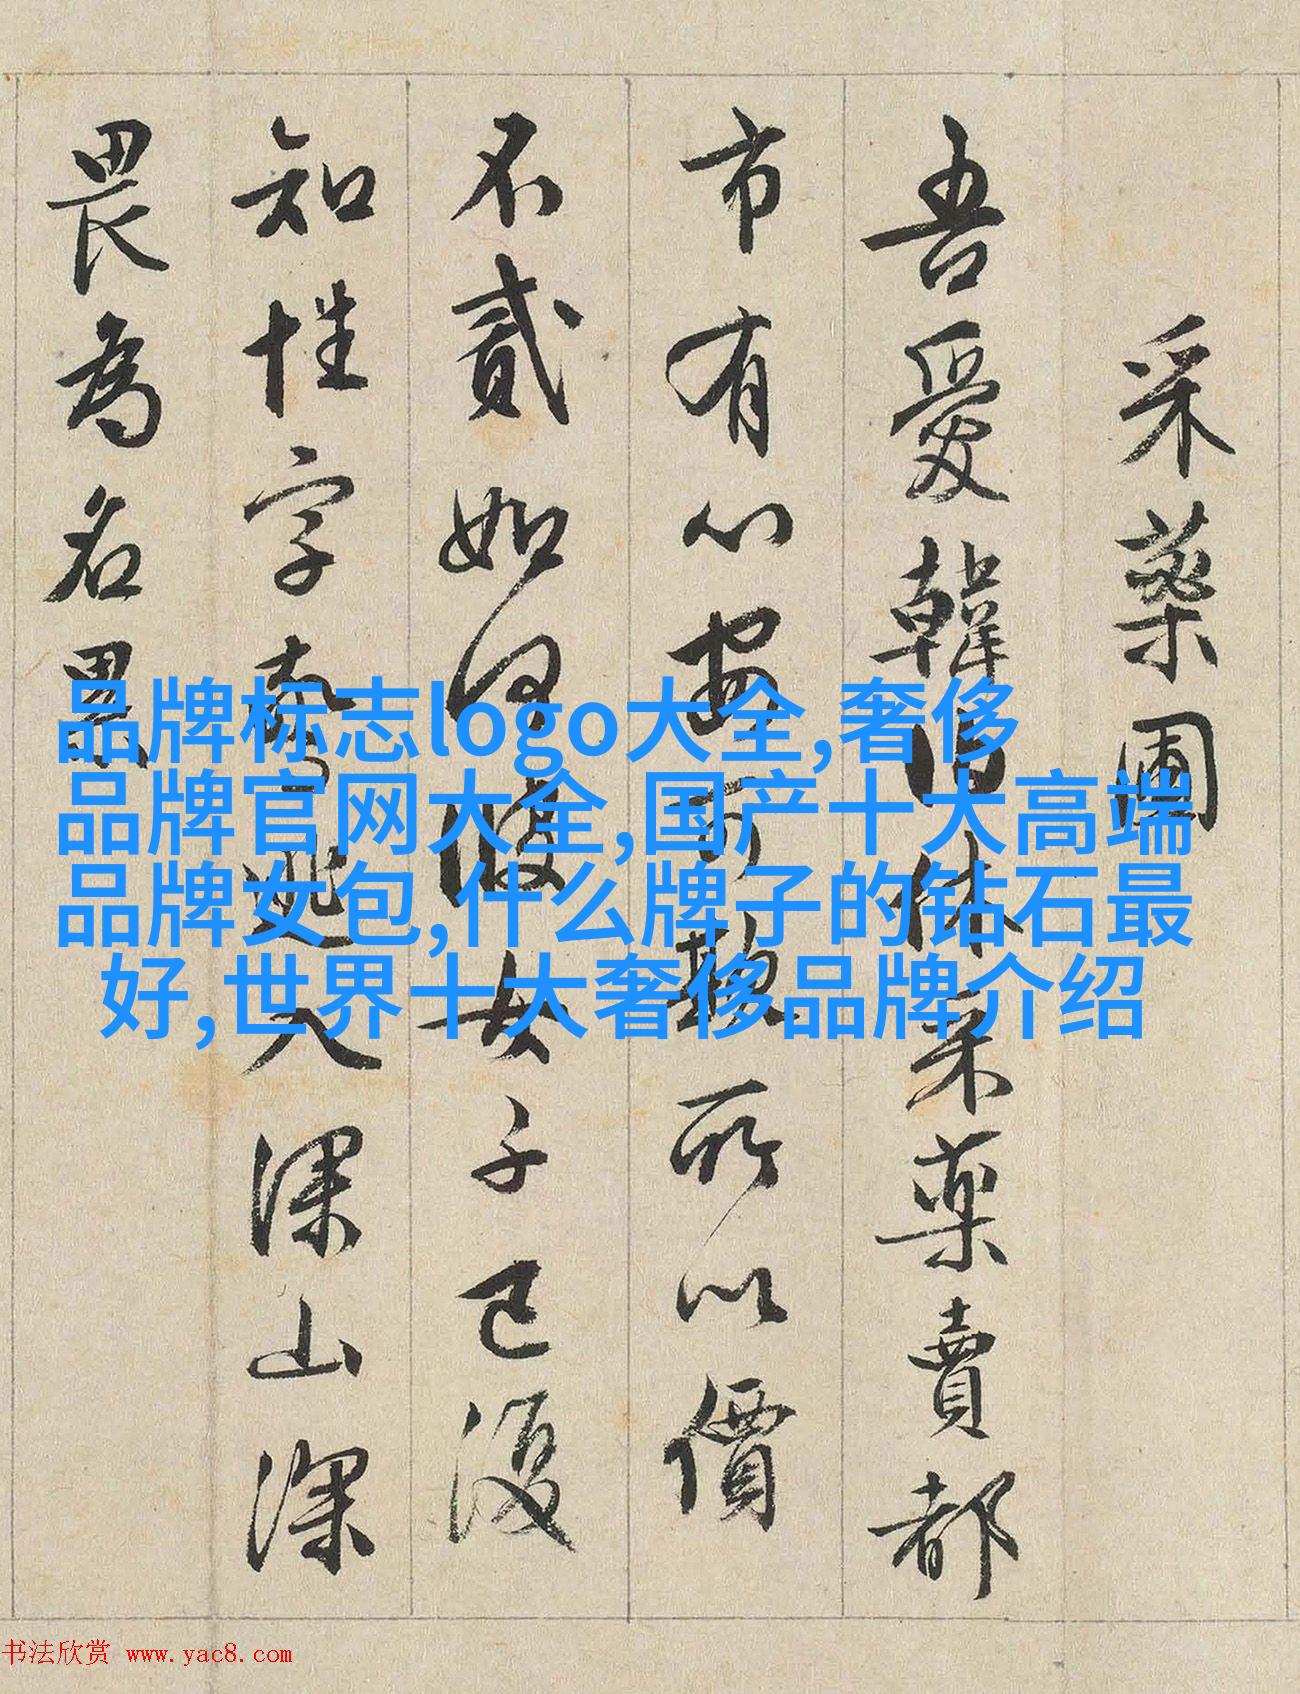 采藥圃
吾愛韓伯休采藥賣都
市有心安可欺所以價
不貳如何彼女子已復
知姓字驚逃入深山深
畏為名累
品牌标志logo大全,奢侈
品牌官网大全,国产十大高端
品牌女包,什么牌子的钻石最
好,世界十大奢侈品牌介绍
书法欣赏 www.yac8.com